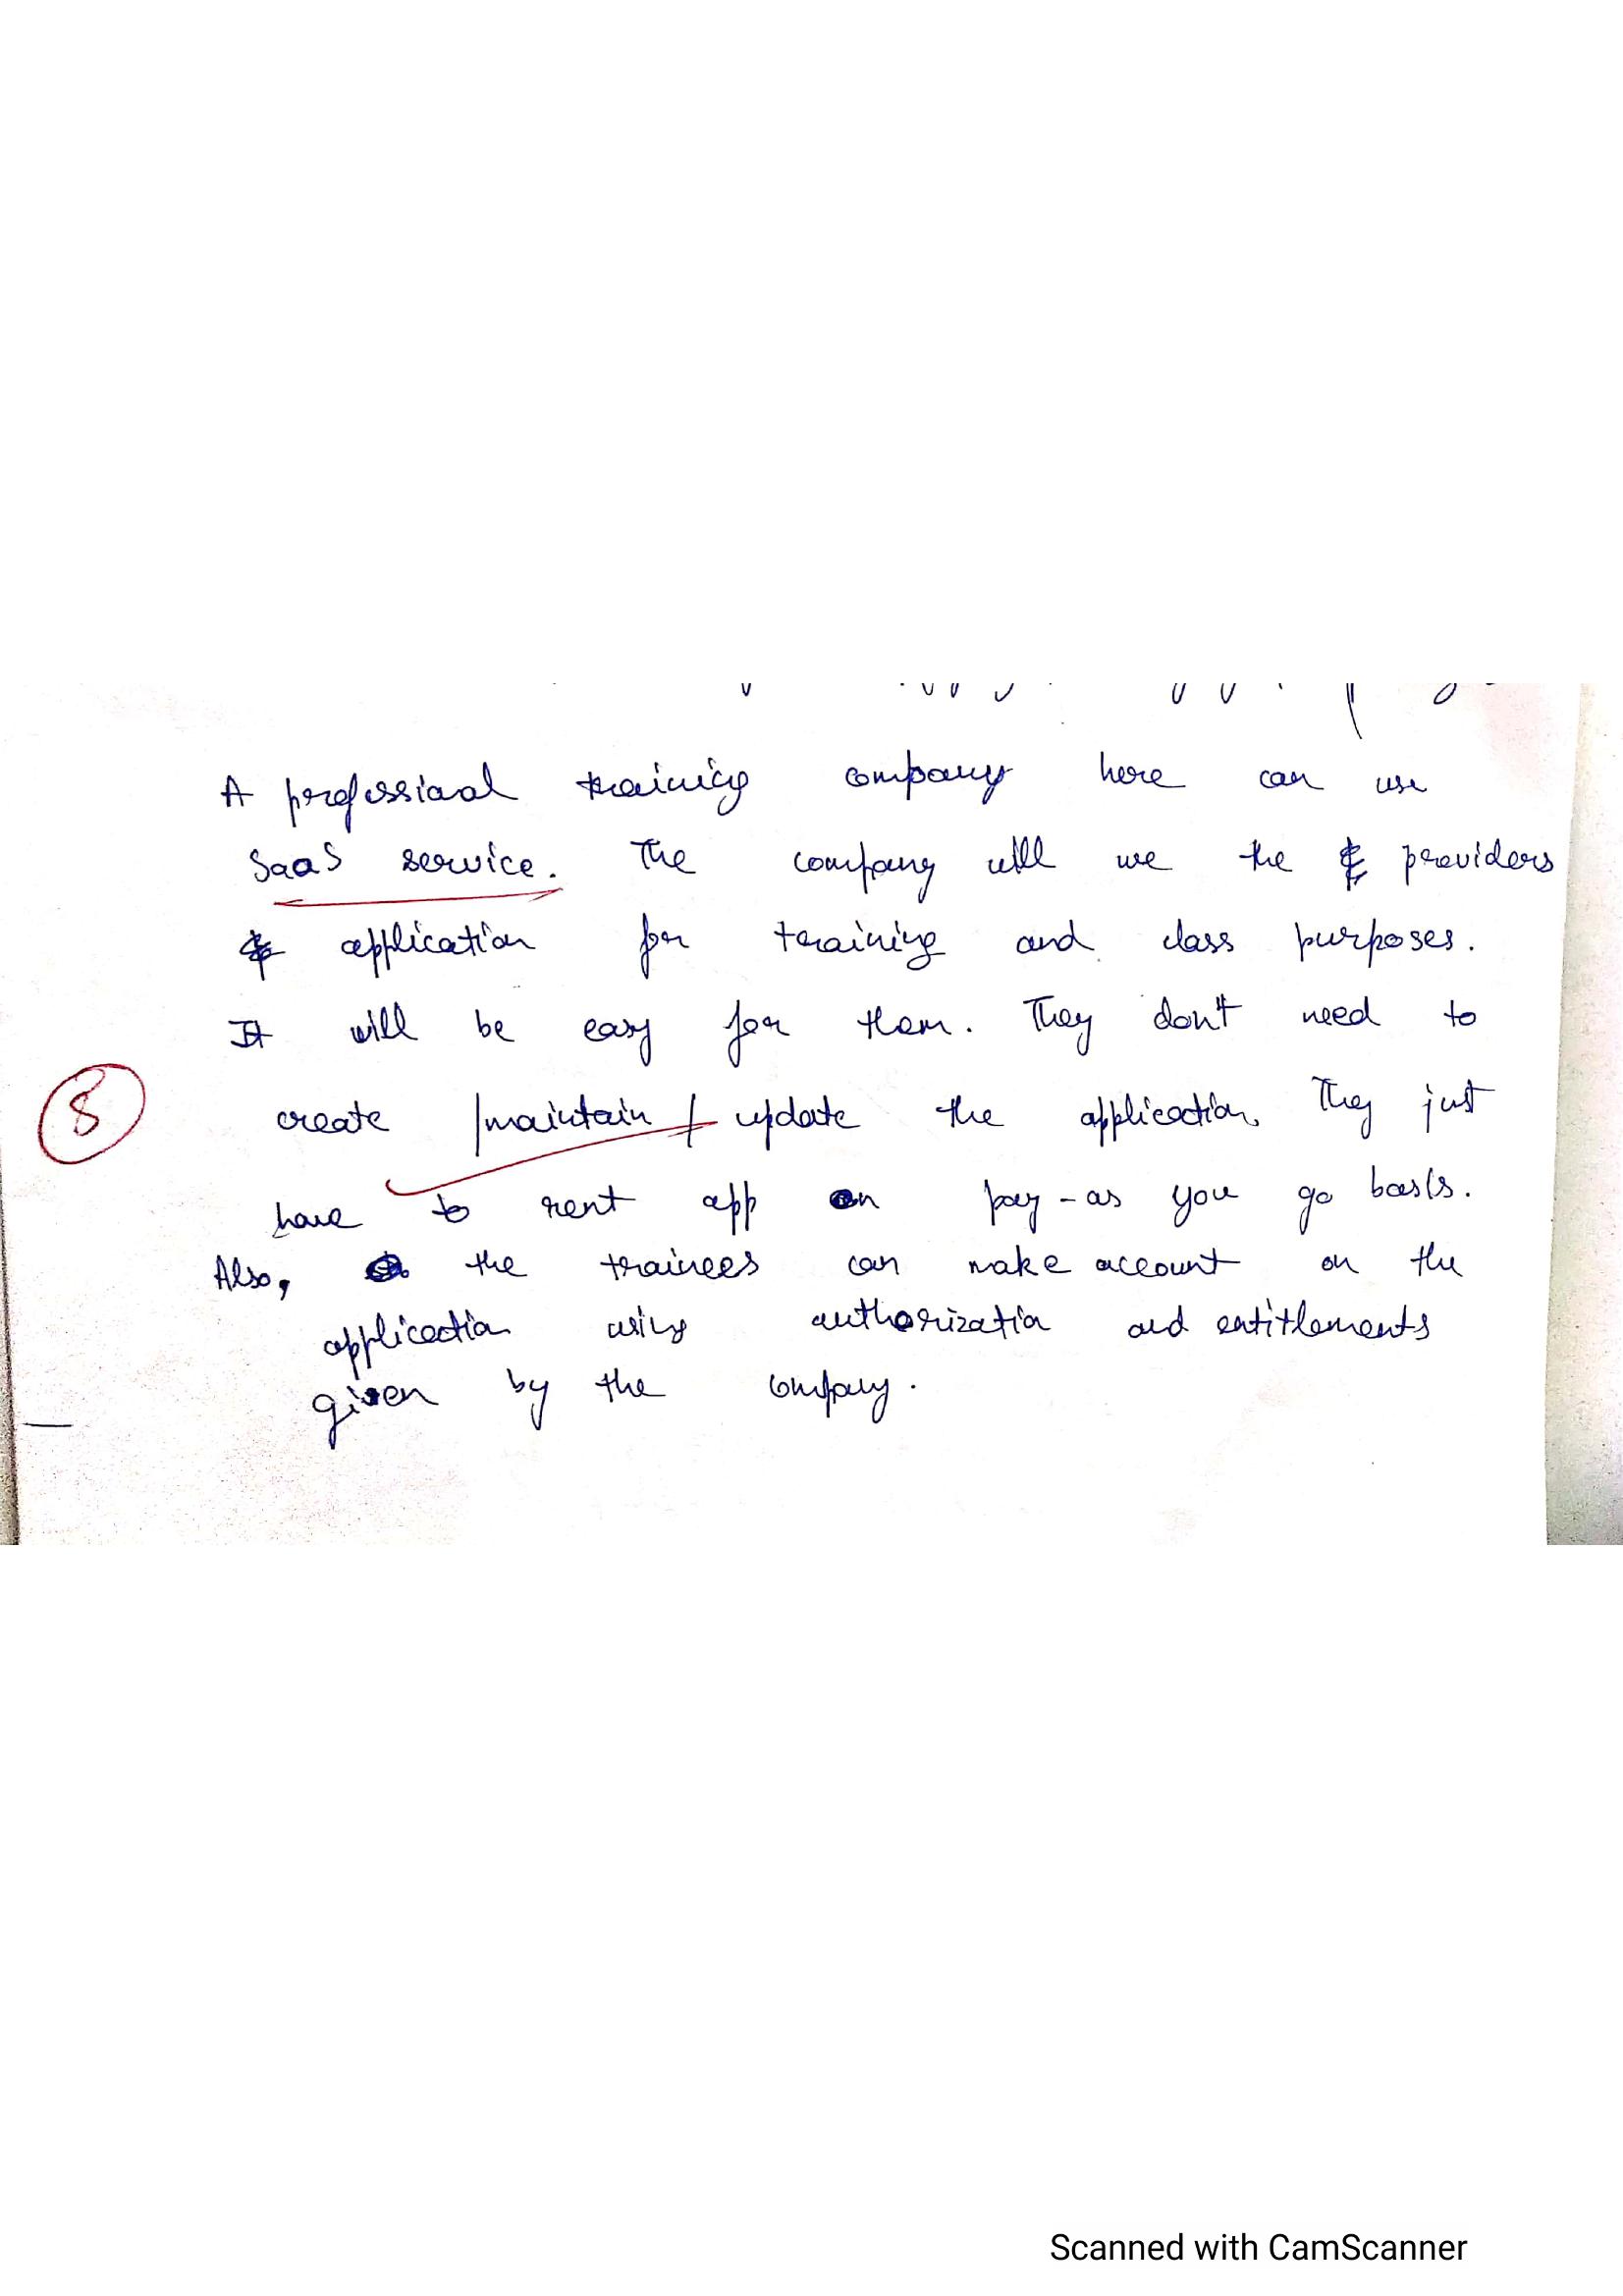 A professional training company here can use
SaaS service. The company will use the providers
application for training and class purposes.
It will be easy for them. They don't need to
create /maintain / update the application. They just
8
have to rent app on pay-as you go basis.
Also, the trainees can make account on the
application using authorization and entitlements
given by the company.
Scanned with CamScanner